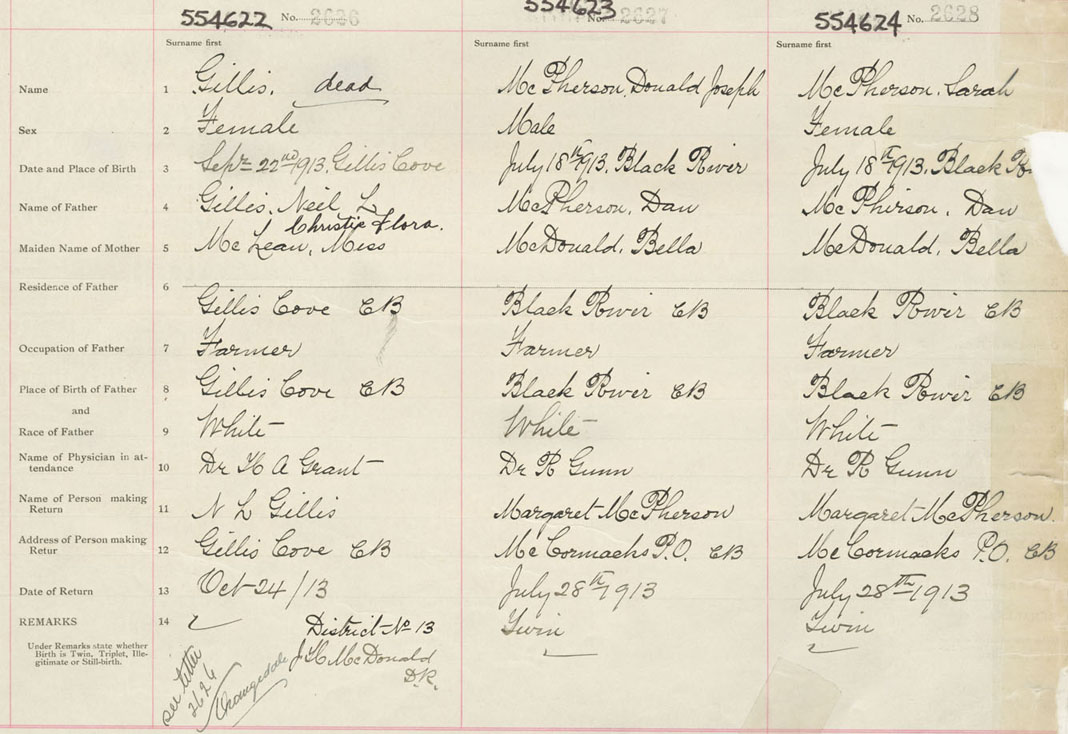 554622 No. 2626 554623 No. 2627 554624 No. 2628
Surname first Surname first Surname first
Name 1 Gillis. dead McPherson, Donald Joseph McPherson, Sarah
Sex 2 Female Male Female
Date and Place of Birth 3 Sept 22nd 1913, Gillis Cove July 18th 1913, Black River July 18th 1913, Black
Name of Father 4 Gillis, Neil L. McPherson, Dan McPhirson, Dan
Christie Flora.
Maiden Name of Mother 5 McLean, Miss McDonald, Bella McDonald, Bella
Residence of Father 6
Gillis Cove CB Black River CB Black River CB
Occupation of Father 7 Farmer Farmer Farmer
Place of Birth of Father 8 Gillis Cove CB Black River CB Black River CB
and
Race of Father 9 White White White
Name of Physician in at-
tendance 10 Dr H A Grant Dr R Gunn Dr R Gunn
Name of Person making
Return 11 N L Gillis Margaret McPherson Margaret McPherson
Address of Person making
Retur 12 Gillis Cove CB McCormacks P.O. CB McCormacks P.O. CB
Date of Return 13 Oct 24/13 July 28th 1913 July 28th 1913
REMARKS 14 District No 13 Twin Twin
Under Remarks state whether
Birth is Twin, Triplet, Ille-
gitimate or Still-birth.
J H McDonald
D.R.
Orangedale
see letter
2626